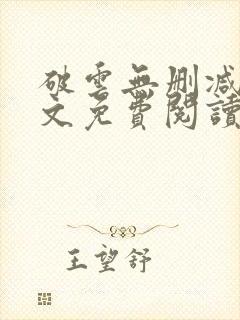 破雲無刪減
文免費閱讀
王望舒